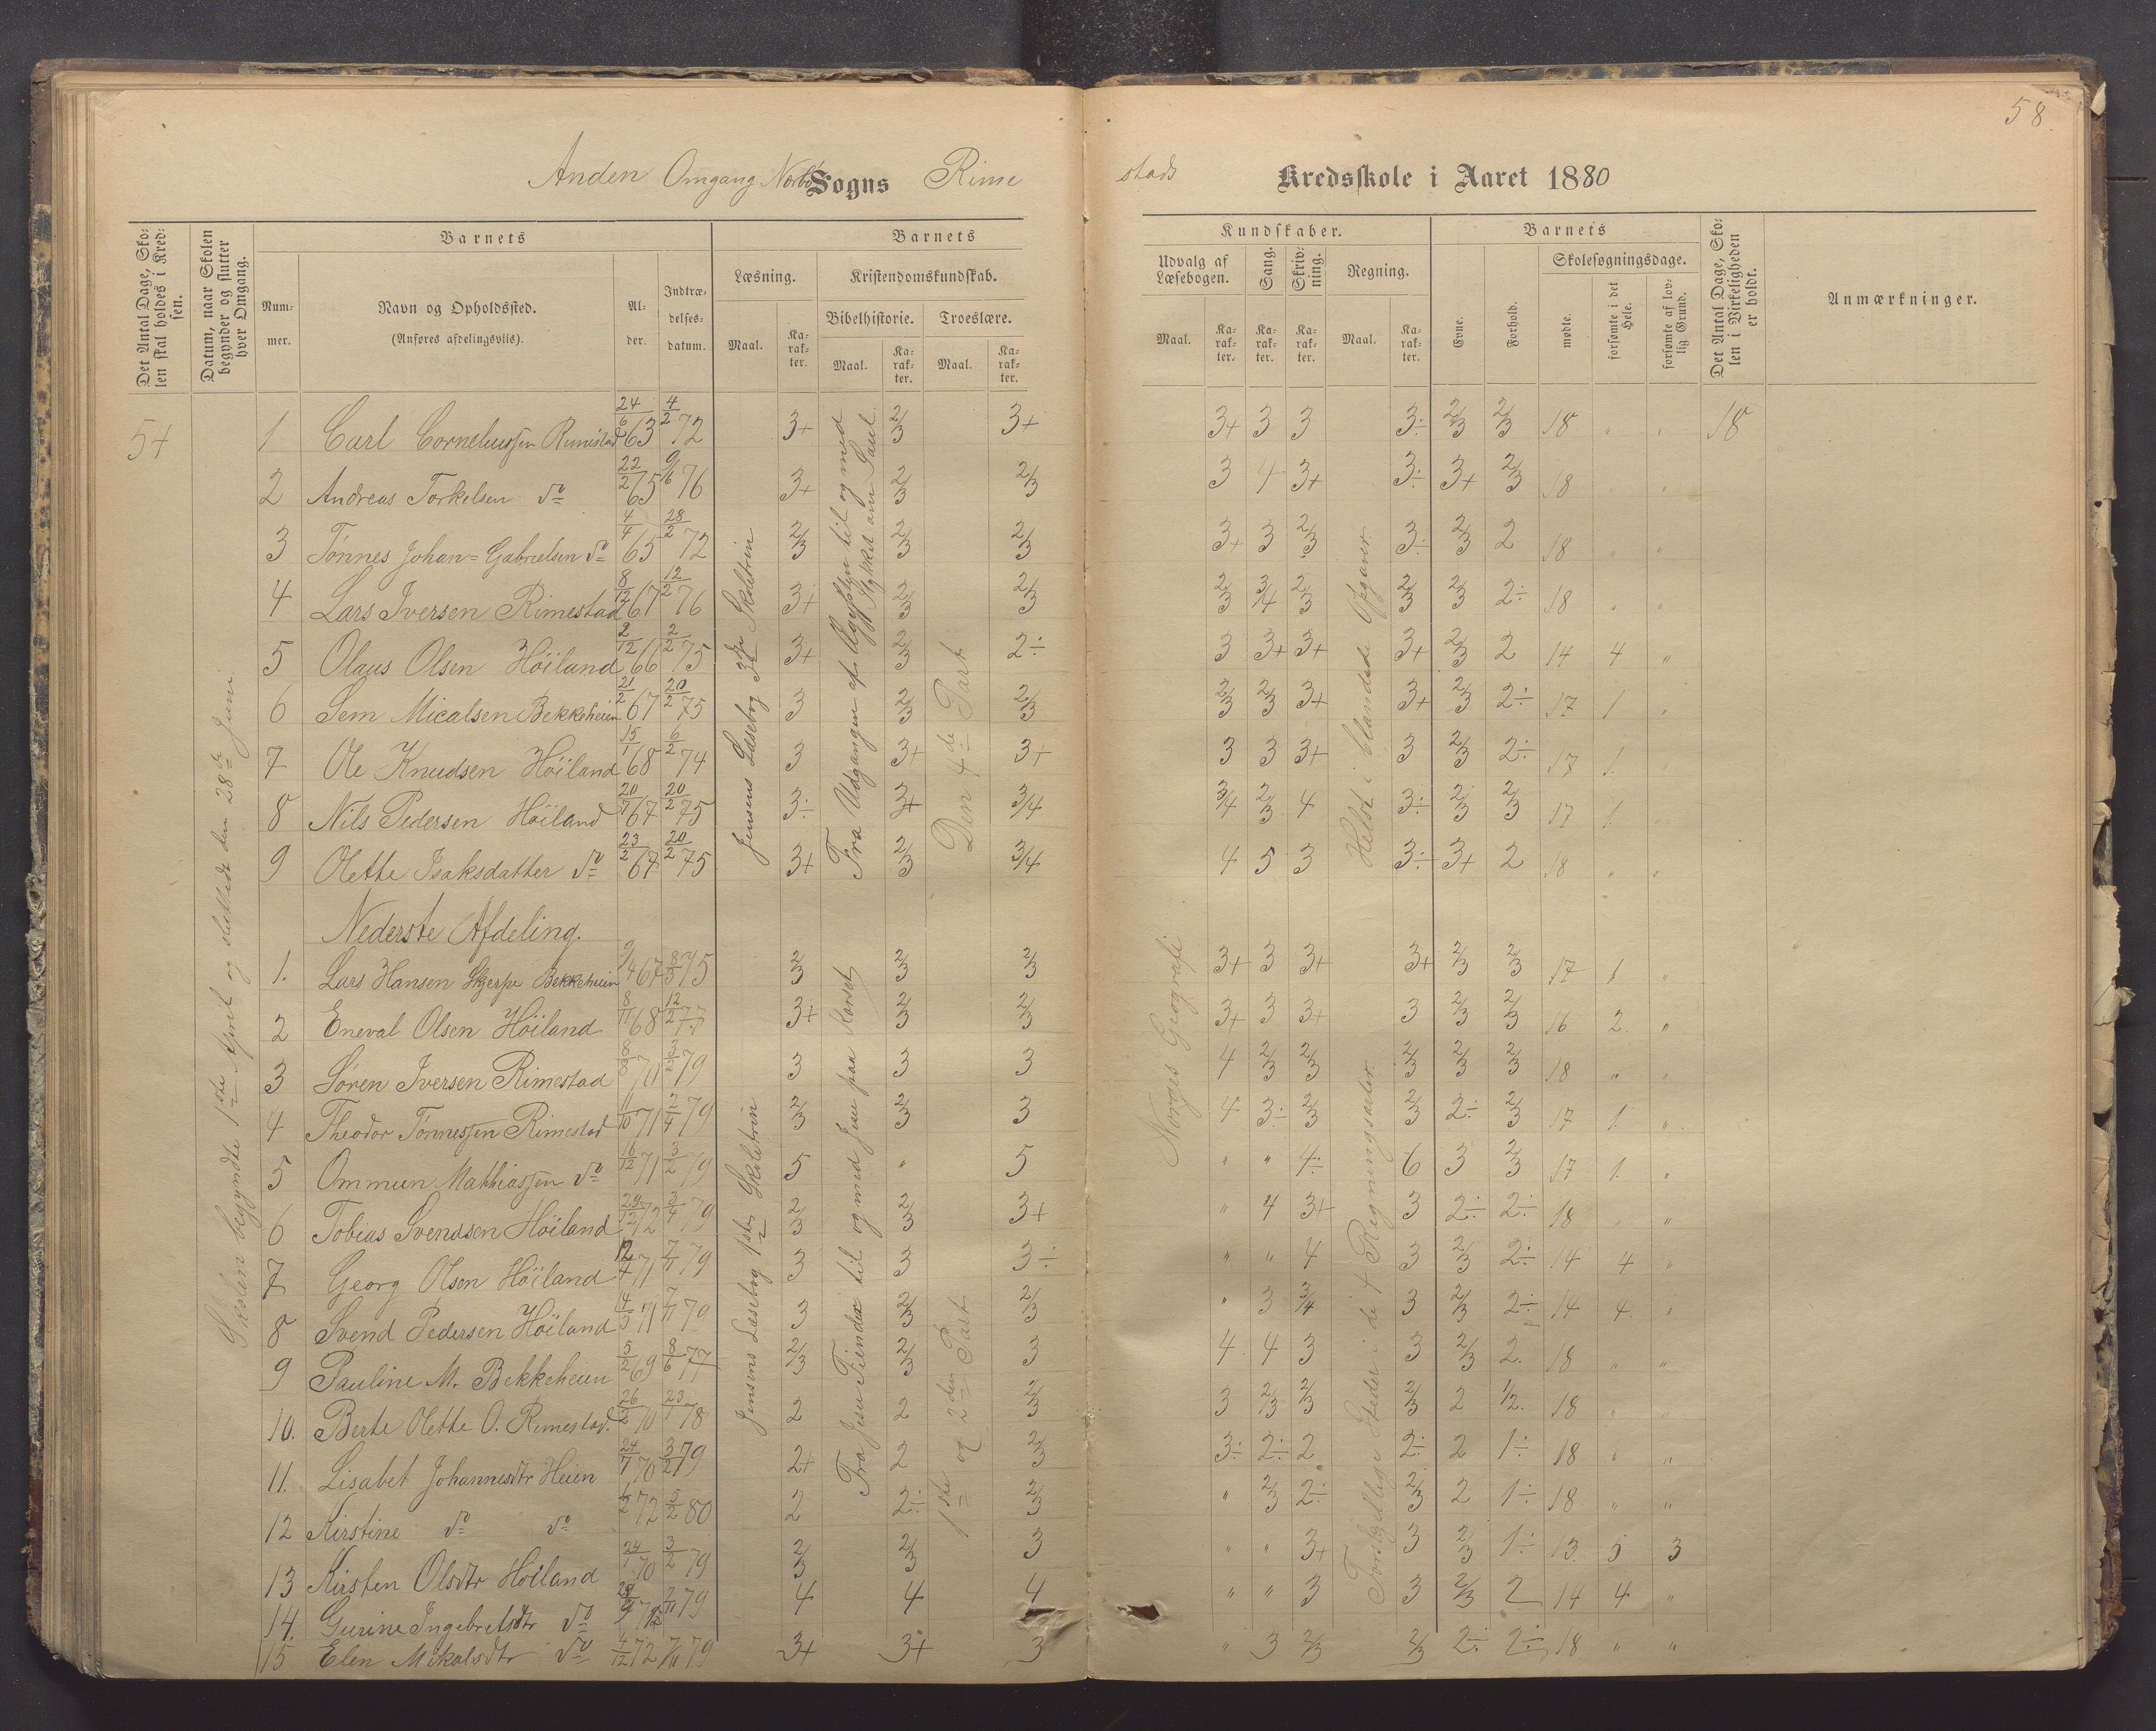 58.
Anden Omgang Nærbø Sogns Rime
stads Kredsskole i Aaret 1880
Det Antal Dage, Skolen skal holdes i Kredsen.
Datum, naar Skolen begynder og slutter hver Omgang.
Barnets
Nummer.
Navn og Opholdssted.
(Anføres afdelingsvis).
Alder.
Indtrædelsesdatum.
Barnets
Læsning.
Maal.
Karakter.
Kristendomskundskab.
Bibelhistorie.
Maal.
Karakter.
Troeslære.
Maal.
Karakter.
Kundskaber.
Udvalg af Læsebogen.
Maal.
Karakter.
Sang.
Karakter.
Skrivning.
Karakter.
Regning.
Maal.
Karakter.
Barnets
Evne.
Forhold.
Skolesøgningsdage.
mødte.
forsømte i det Hele.
forsømte af lovlig Grund.
Det Antal Dage, Skolen i Virkeligheden er holdt.
Anmærkninger.
54
Skolen begyndte 1ste April og sluttedt den 28de Juni.
Jensens Læsebog 3die Skoletrin
Fra Udgangen af Ægypten til og med Stykket om Saul.
Den 4de Part
Helst i blandede Opgaver.
1 Carl Corneliussen Rimestad 24/6 63 4/2 72 3+ 2/3 3+ 3+ 3 3 3÷ 2/3 2/3 18 " " 18
2 Andreas Torkelsen do 22/2 65 9/6 76 3+ 2/3 2/3 3 4 3+ 3÷ 3+ 2/3 18 " "
3 Tønnes Johan=Gabrielsen do 4/4 65 28/2 72 2/3 2/3 2/3 3+ 3 2/3 3÷ 2/3 2 18 " "
4 Lars Iversen Rimestad 8/12 67 12/2 76 3+ 2/3 2/3 2/3 3/4 2/3 2/3 2/3 2÷ 18 " "
5 Olaus Olsen Höiland 2/12 66 2/2 75 3+ 2/3 2÷ 3 3+ 3+ 3+ 2/3 2 14 4 "
6 Sem Micalsen Bekkeheien 21/2 67 20/2 75 3 2/3 2/3 2/3 2/3 3+ 3+ 2/3 2÷ 17 1 "
7 Ole Knudsen Höiland 15/1 68 6/2 74 3 3+ 3+ 3 3 3+ 3 2/3 2÷ 17 1. "
8 Nils Pedersen Höiland 20/7 67 20/2 75 3÷ 3+ 3/4 3/4 2/3 4 3÷ 2/3 2/3 17 1. "
9 Olette Isaksdatter do 23/2 67 20/2 75 3+ 2/3 3/4 4 5 3 3÷ 3+ 2 18 " "
Nederste Afdeling.
Jensens Læsebog 1ste Skoletrin
Fra Jesu Fiender til og med Jesu paa Korset
1ste og 2den Part
Norges Geografi
Forskjellige Steder i de 4 Regningsarter.
1. Lars Hansen Skjerpe Bekkeheien 9/4 67 8/3 75 2/3 2/3 2/3 3+ 3 3+ 3+ 2/3 2/3 17 1 "
2 Eneval Olsen Höiland 8/11 68 12/2 77 3+ 2/3 2/3 3+ 3 3+ 3 2/3 2/3 16 2. "
3 Søren Iversen Rimestad 8/8 70 3/2 79 3 3 3 4 2/3 2/3 2/3 2/3 2/3 18 " "
4 Theodor Tønnessen Rimestad 11/10 71 2/4 79 2/3 2/3 3 4 3÷ 2/3 2/3 2÷ 2/3 17 1. "
5 Ommun Mathiassen do 16/12 71 3/2 79 5 " 5 " " 4÷ 6 3 2/3 17 1. "
6 Tobias Svendsen Höiland 29/12 72 3/4 79 2/3 2/3 3+ " 4 3+ 3 2÷ 2÷ 18 " "
7 Georg Olsen Höiland 12/4 71 7/11 79 3 3 3÷ " " 4 3 2/3 2÷ 14 4 "
8 Svend Pedersen Höiland 4/5 71 7/11 79 3 2/3 2/3 " 3 3/4 3 2/3 2÷ 14 4. "
9 Pauline M. Bekkeheien 5/2 69 8/6 77 2/3 2/3 3 4 4 3 3 2/3 2. 18 " "
10. Berte Olette O. Rimestad. 26/2 70 23/1 78 2 2 2/3 3 2/3 2/3 2/3 2 1/2. 18 " "
11. Lisabet Johannesdtr Heien 24/7 70 3/2 79 2+ 2 2/3 3÷ 2÷ 2 2÷ 2 1÷ 18 " "
12 Kirstine do do 1/2 72 5/2 80 2 2÷ 2/3 " 2/3 2÷ 2/3 2 1÷ 18 " "
13 Kirsten Olsdtr Höiland 24/1 70 3/2 79 2/3 2/3 3 " " 3+ 3 2/3 1÷ 13 5 3
14. Gurine Ingebretsdtr do 7/11 79 4 4 4 " " 3 3 2/3 2 14 4 "
15 Elen Mikalsdtr do 4/12 72 7/11 79 3+ 3+ 3 " 3 2/3 2/3 2÷ 2÷ 18 " "